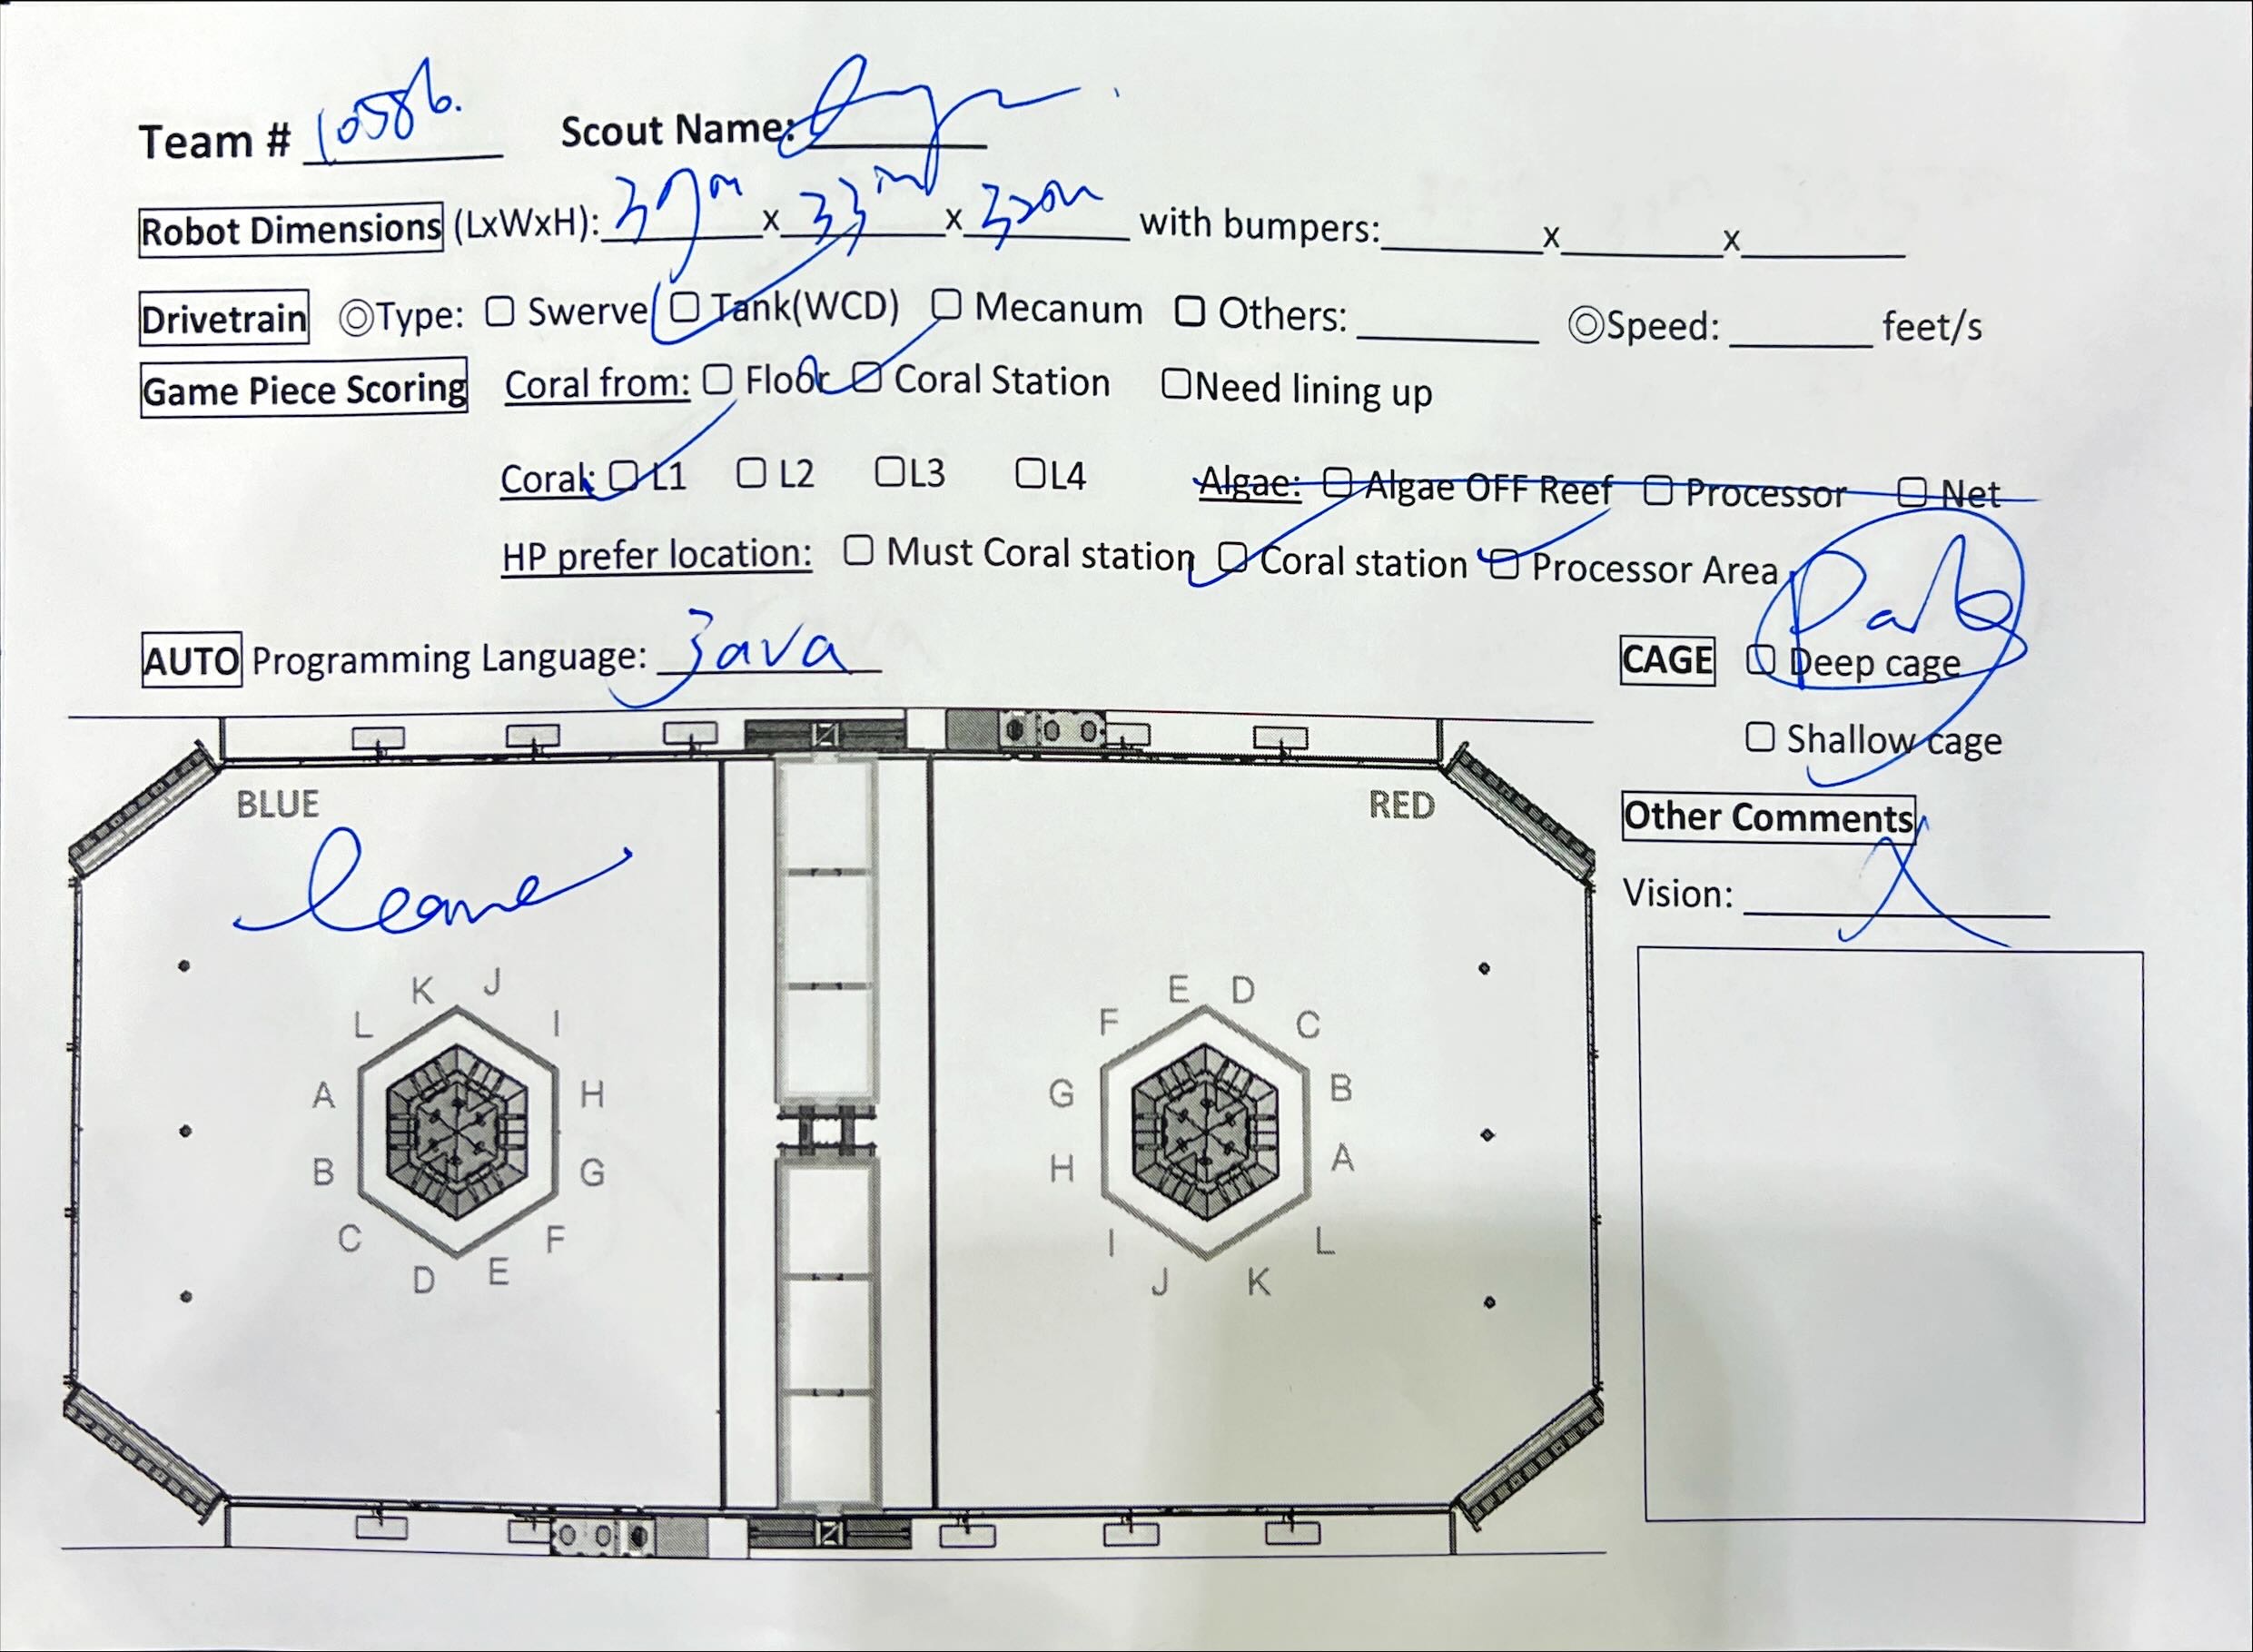 Team # 10586. Scout Name:
Robot Dimensions (LxWxH): 37in x 33in x 32in with bumpers: x x
Drivetrain ◎Type: ☐ Swerve ☑ Tank(WCD) ☐ Mecanum ☐ Others: ◎Speed: feet/s
Game Piece Scoring Coral from: ☐ Floor ☑ Coral Station ☐Need lining up
Coral: ☑ L1 ☐ L2 ☐L3 ☐L4 Algae: ☐ Algae OFF Reef ☐ Processor ☐ Net
HP prefer location: ☐ Must Coral station ☑ Coral station ☑ Processor Area
Park
AUTO Programming Language: Java CAGE ☐ Deep cage
☐ Shallow cage
BLUE RED
Other Comments
Vision: X
K J E D
L I F C
A H G B
B G H A
C F I L
D E J K